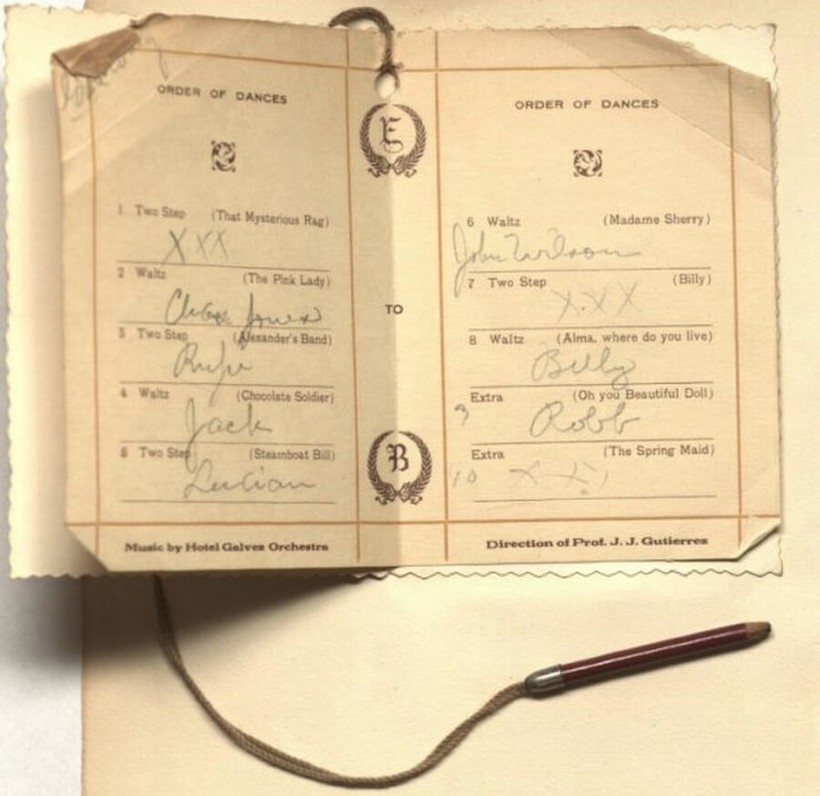 ORDER OF DANCES
1 Two Step (That Mysterious Rag)
XXX
2 Waltz (The Pink Lady)
Jones
3 Two Step (Alexander's Band)
4 Waltz (Chocolate Soldier)
Jack
5 Two Step (Steamboat Bill)
Lucian
Music by Hotel Galvez Orchestra
E
TO
B
ORDER OF DANCES
6 Waltz (Madame Sherry)
John Wilson
7 Two Step (Billy)
X.X X
8 Waltz (Alma, where do you live)
Billy
Extra (Oh you Beautiful Doll)
9 Robb
Extra (The Spring Maid)
10 X X
Direction of Prof. J. J. Gutierrez